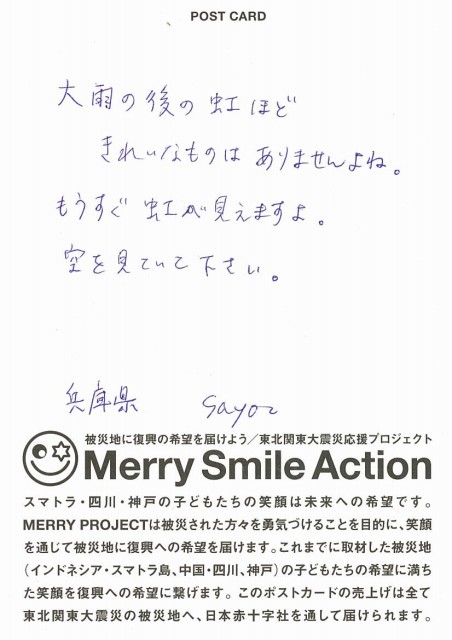 POST CARD
大雨の後の虹ほど
きれいなものは ありませんよね。
もうすぐ 虹が見えますよ。
空を見ていて下さい。
兵庫県 Sayoz
被災地に復興の希望を届けよう／東北関東大震災応援プロジェクト
Merry Smile Action
スマトラ・四川・神戸の子どもたちの笑顔は未来への希望です。
MERRY PROJECTは被災された方々を勇気づけることを目的に、笑顔
を通じて被災地に復興への希望を届けます。これまでに取材した被災地
（インドネシア・スマトラ島、中国・四川、神戸）の子どもたちの希望に満ち
た笑顔を復興への希望に繋げます。このポストカードの売上げは全て
東北関東大震災の被災地へ、日本赤十字社を通して届けられます。